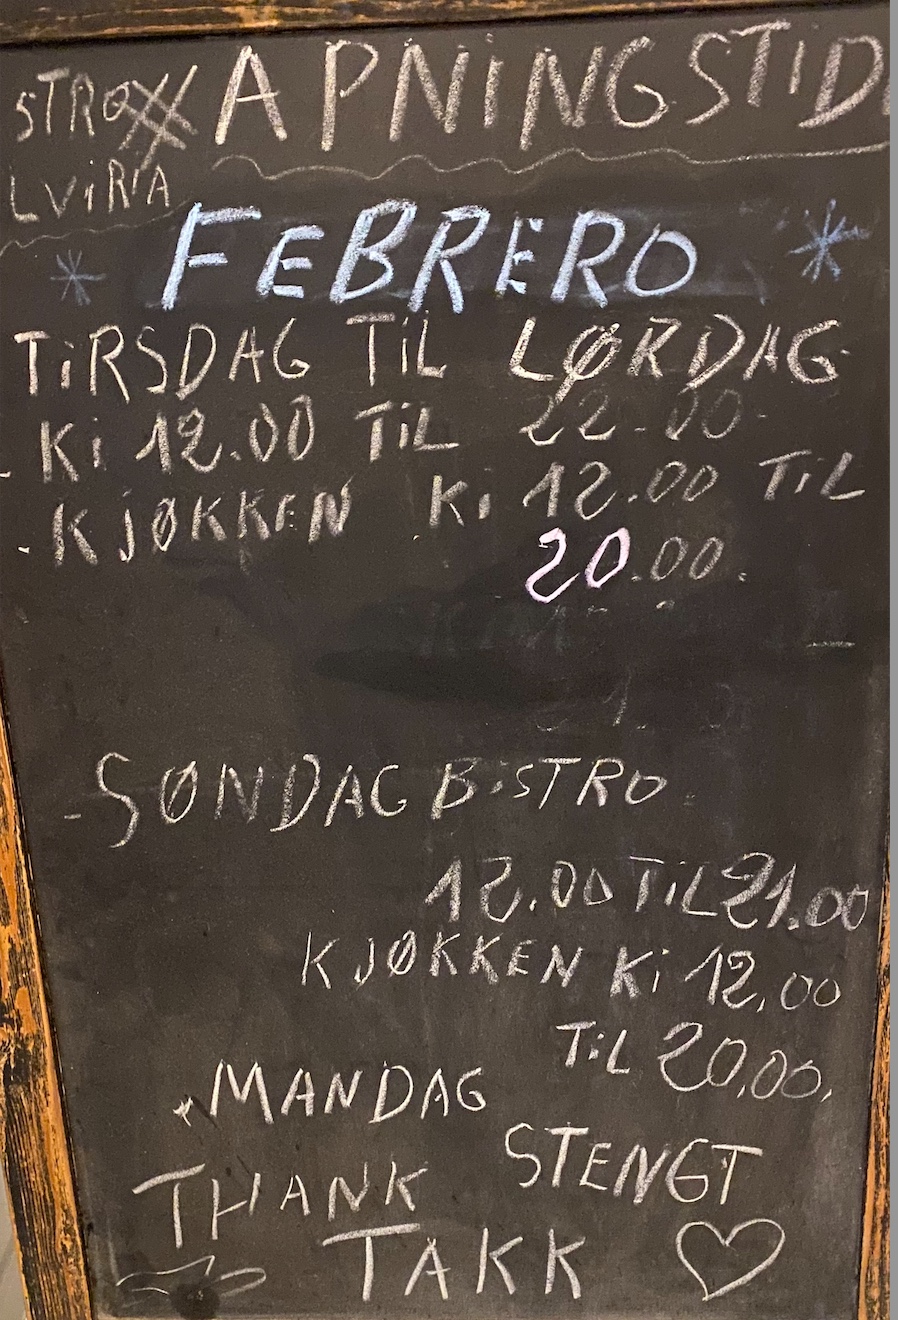 APNINGSTID
STRO
LViRiA
FEBRERO
TiRSDAG TiL LØRDAG.
- Ki 12.00 TiL 22-00-
- KJØKKEN Ki 12.00 TiL
20.00.
-SØNDAG BiSTRO.
12.00 TiL 21.00
KJØKKEN Ki 12,00
TiL 20,00,
MANDAG
STENGT
THANK
TAKK ♡